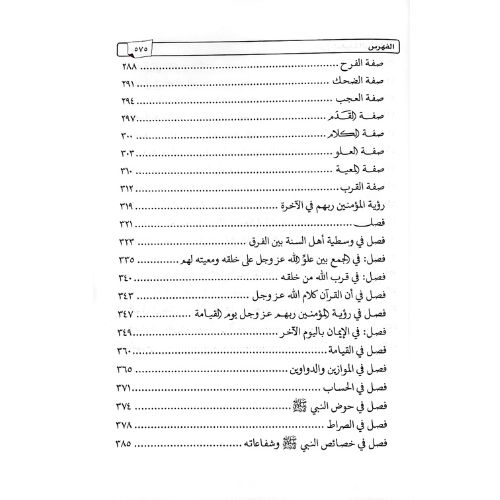 الفهرس ٥٧٥
صفة الفرح ٢٨٨
صفة الضحك ٢٩١
صفة العجب ٢٩٤
صفة القدم ٢٩٧
صفة الكلام ٣٠٠
صفة العلو ٣٠٣
صفة المعية ٣٦٠
صفة القرب ٣١٢
رؤية المؤمنين ربهم في الآخرة ٣١٩
فصل ٣٢١
فصل في وسطية أهل السنة بين الفرق ٣٢٣
فصل: في الجمع بين علو الله عز وجل على خلقه ومعيته لهم ٣٣٥
فصل: في قرب الله من خلقه ٣٤٠
فصل في أن القرآن كلام الله عز وجل ٣٤٣
فصل في رؤية المؤمنين ربهم عز وجل يوم القيامة ٣٤٧
فصل: في الإيمان باليوم الآخر ٣٤٩
فصل في القيامة ٣٦٠
فصل في الموازين والدواوين ٣٦٥
فصل في الحساب ٣٧١
فصل في حوض النبي ﷺ ٣٧٤
فصل في الصراط ٣٧٨
فصل في خصائص النبي ﷺ وشفاعاته ٣٨٥